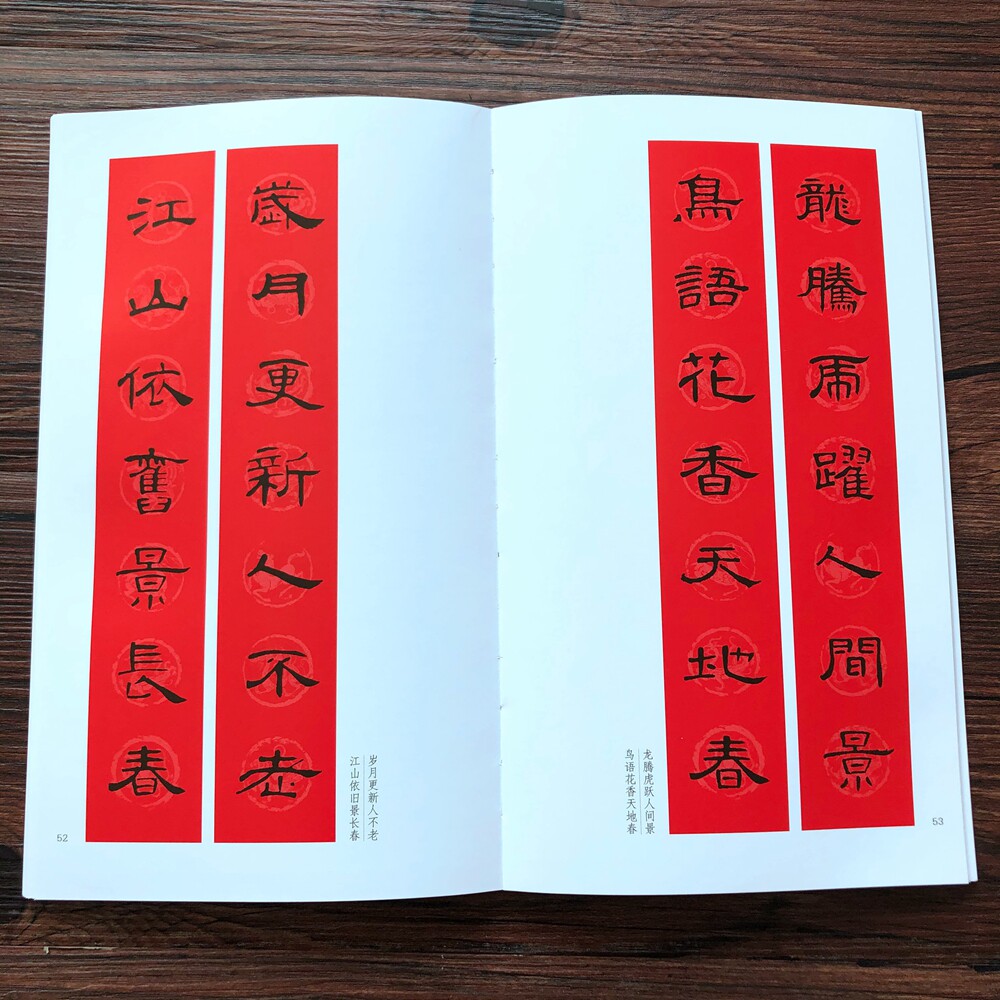 歲月更新人不老
江山依舊景長春
岁月更新人不老
江山依旧景长春
52
龍騰虎躍人間景
鳥語花香天地春
龙腾虎跃人间景
鸟语花香天地春
53